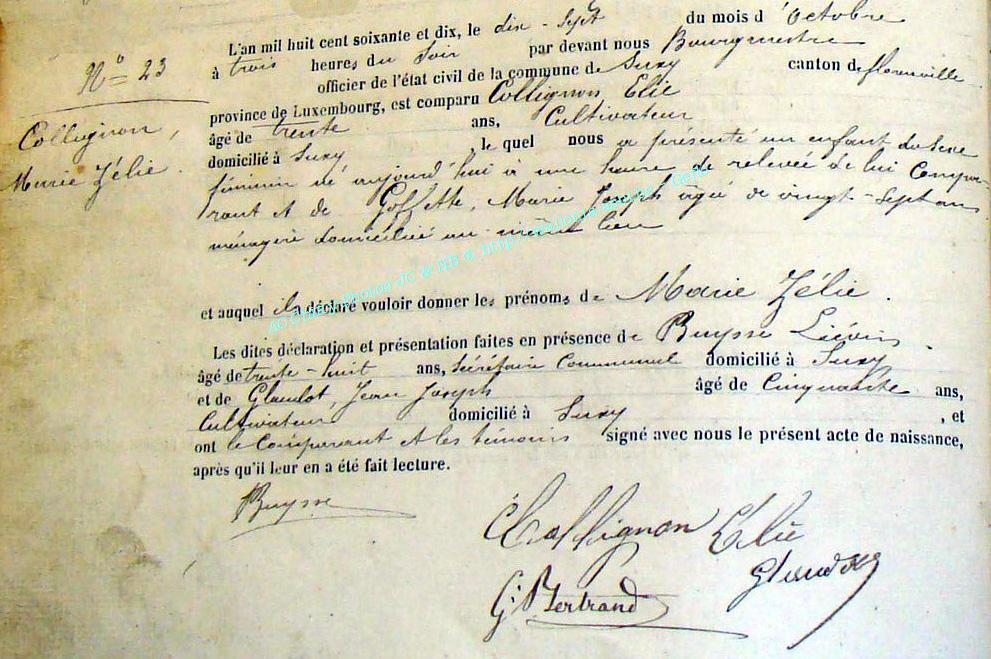 N° 23
Collignon,
Marie Zélie.
L'an mil huit cent soixante et dix, le dix-sept du mois d'Octobre
à trois heures du soir par devant nous Bourgmestre
officier de l'état civil de la commune de Suxy canton de florenville
province de Luxembourg, est comparu Collignon Elie
âgé de trente ans, Cultivateur
domicilié à Suxy, le quel nous a présenté un enfant du sexe
féminin né aujourd'hui à une heure de relevée de lui Compa-
rant et de Goffette, Marie Joseph âgée de vingt-sept ans
ménagère domiciliée au même lieu
et auquel il a déclaré vouloir donner les prénoms de Marie Zélie.
Les dites déclaration et présentation faites en présence de Buysse Liévin
âgé de trente-huit ans, Sécrétaire Communal domicilié à Suxy
et de Glaudot, Jean Joseph âgé de Cinquante ans,
Cultivateur domicilié à Suxy, et
ont le Comparant et les témoins signé avec nous le présent acte de naissance,
après qu'il leur en a été fait lecture.
Buysse
Collignon Elie
Glaudot
G. Bertrand